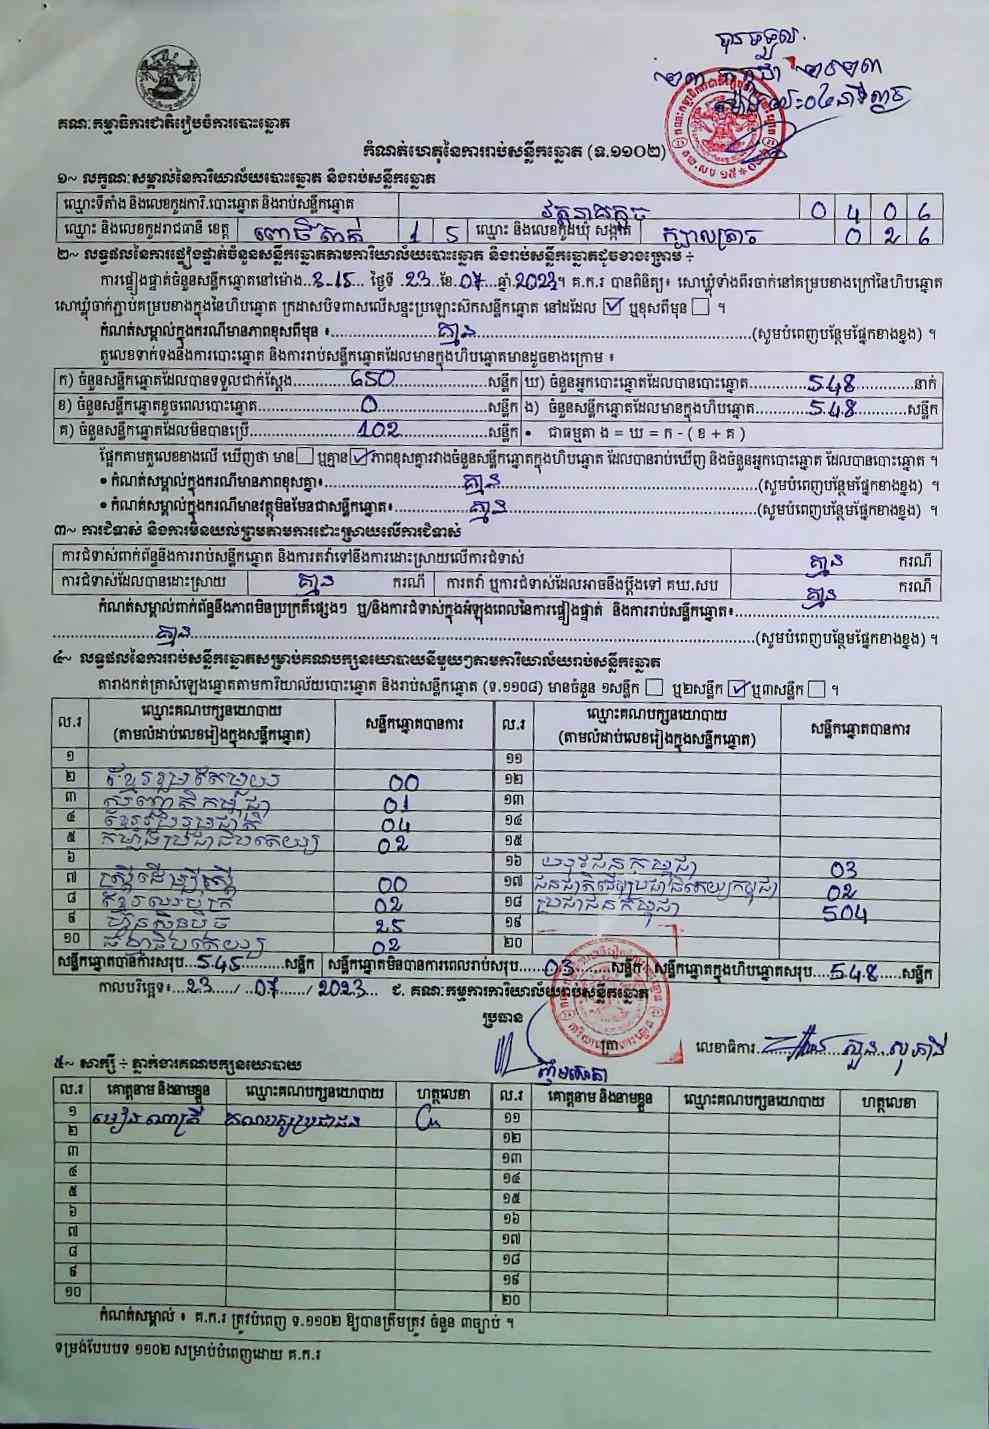 បានទទួល
២៣ កក្កដា ២០២៣
គណៈកម្មាធិការជាតិរៀបចំការបោះឆ្នោត
កំណត់ហេតុនៃការរាប់សន្លឹកឆ្នោត (ទ.១១០២)
១~ លក្ខណៈសម្គាល់នៃការិយាល័យបោះឆ្នោត និងរាប់សន្លឹកឆ្នោត
ឈ្មោះទីតាំង និងលេខកូដការិ.បោះឆ្នោត និងរាប់សន្លឹកឆ្នោត 0 4 0 6
ឈ្មោះ និងលេខកូដរាជធានី ខេត្ត ពោធិ៍សាត់ 1 5 ឈ្មោះ និងលេខកូដឃុំ សង្កាត់ ក្បាលត្រាច 0 2 6
២~ លទ្ធផលនៃការផ្ទៀងផ្ទាត់ចំនួនសន្លឹកឆ្នោតតាមការិយាល័យបោះឆ្នោត និងរាប់សន្លឹកឆ្នោតដូចខាងក្រោម ÷
ការផ្ទៀងផ្ទាត់ចំនួនសន្លឹកឆ្នោតនៅម៉ោង..3-15.. ថ្ងៃទី .23...ខែ.07...ឆ្នាំ.2023។ គ.ក.រ បានពិនិត្យ៖ សោឃ្លុំទាំងពីរចាក់នៅគម្របខាងក្រៅនៃហិបឆ្នោត
សោឃ្លុំចាក់ភ្ជាប់គម្របខាងក្នុងនៃហិបឆ្នោត ក្រដាសបិទពាសលើសន្ទះប្រឡោះស៊កសន្លឹកឆ្នោត នៅដដែល ☑ ឬខុសពីមុន ☐ ។
កំណត់សម្គាល់ក្នុងករណីមានភាពខុសពីមុន ៖ គ្មាន (សូមបំពេញបន្ថែមផ្នែកខាងខ្នង) ។
តួលេខទាក់ទងនឹងការបោះឆ្នោត និងការរាប់សន្លឹកឆ្នោតដែលមានក្នុងហិបឆ្នោតមានដូចខាងក្រោម ៖
ក) ចំនួនសន្លឹកឆ្នោតដែលបានទទួលជាក់ស្តែង 650 សន្លឹក ឃ) ចំនួនអ្នកបោះឆ្នោតដែលបានបោះឆ្នោត 548 នាក់
ខ) ចំនួនសន្លឹកឆ្នោតខូចពេលបោះឆ្នោត 0 សន្លឹក ង) ចំនួនសន្លឹកឆ្នោតដែលមានក្នុងហិបឆ្នោត 548 សន្លឹក
គ) ចំនួនសន្លឹកឆ្នោតដែលមិនបានប្រើ 102 សន្លឹក • ជាធម្មតា ង = ឃ = ក - ( ខ + គ )
ផ្អែកតាមតួលេខខាងលើ ឃើញថា មាន ☐ ឬគ្មាន ☑ ភាពខុសគ្នារវាងចំនួនសន្លឹកឆ្នោតក្នុងហិបឆ្នោត ដែលបានរាប់ឃើញ និងចំនួនអ្នកបោះឆ្នោត ដែលបានបោះឆ្នោត ។
• កំណត់សម្គាល់ក្នុងករណីមានភាពខុសគ្នា៖ គ្មាន (សូមបំពេញបន្ថែមផ្នែកខាងខ្នង) ។
• កំណត់សម្គាល់ក្នុងករណីមានវត្ថុមិនមែនជាសន្លឹកឆ្នោត៖ គ្មាន (សូមបំពេញបន្ថែមផ្នែកខាងខ្នង) ។
៣~ ការជំទាស់ និងការមិនយល់ព្រមតាមការដោះស្រាយលើការជំទាស់
ការជំទាស់ពាក់ព័ន្ធនឹងការរាប់សន្លឹកឆ្នោត និងការតវ៉ាទៅនឹងការដោះស្រាយលើការជំទាស់ គ្មាន ករណី
ការជំទាស់ដែលបានដោះស្រាយ គ្មាន ករណី ការតវ៉ា ឬការជំទាស់ដែលអាចនឹងប្តឹងទៅ គឃ.សប គ្មាន ករណី
កំណត់សម្គាល់ពាក់ព័ន្ធនឹងភាពមិនប្រក្រតីផ្សេងៗ ឬ/និងការជំទាស់ក្នុងអំឡុងពេលនៃការផ្ទៀងផ្ទាត់ និងការរាប់សន្លឹកឆ្នោត៖
គ្មាន (សូមបំពេញបន្ថែមផ្នែកខាងខ្នង) ។
៤~ លទ្ធផលនៃការរាប់សន្លឹកឆ្នោតសម្រាប់គណបក្សនយោបាយនីមួយៗតាមការិយាល័យរាប់សន្លឹកឆ្នោត
តារាងកត់ត្រាសំឡេងឆ្នោតតាមការិយាល័យបោះឆ្នោត និងរាប់សន្លឹកឆ្នោត (ទ.១១០៨) មានចំនួន ១សន្លឹក ☐ ឬ២សន្លឹក ☑ ឬ៣សន្លឹក ☐ ។
ល.រ ឈ្មោះគណបក្សនយោបាយ (តាមលំដាប់លេខរៀងក្នុងសន្លឹកឆ្នោត) សន្លឹកឆ្នោតបានការ ល.រ ឈ្មោះគណបក្សនយោបាយ (តាមលំដាប់លេខរៀងក្នុងសន្លឹកឆ្នោត) សន្លឹកឆ្នោតបានការ
១ ១១
២ ខ្មែររួបរួមតែមួយ 00 ១២
៣ សញ្ជាតិកម្ពុជា 01 ១៣
៤ ខ្មែររួបរួមជាតិ 04 ១៤
៥ កម្លាំងប្រជាធិបតេយ្យ 02 ១៥
៦ ១៦ យុវជនកម្ពុជា 03
៧ ស្ត្រីដើម្បីស្ត្រី 00 ១៧ ជនជាតិដើមប្រជាធិបតេយ្យកម្ពុជា 02
៨ 02 ១៨ ប្រជាជនកម្ពុជា 504
៩ ហ្វ៊ុនស៊ិនប៉ិច 25 ១៩
១០ ធម្មាធិបតេយ្យ 02 ២០
សន្លឹកឆ្នោតបានការសរុប 545 សន្លឹក សន្លឹកឆ្នោតមិនបានការពេលរាប់សរុប 03 សន្លឹក សន្លឹកឆ្នោតក្នុងហិបឆ្នោតសរុប 548 សន្លឹក
កាលបរិច្ឆេទ៖ 23 / 07 / 2023 ជ. គណៈកម្មការការិយាល័យរាប់សន្លឹកឆ្នោត
ប្រធាន
លេខាធិការ
៥~ សាក្សី ÷ ភ្នាក់ងារគណបក្សនយោបាយ
ល.រ គោត្តនាម និងនាមខ្លួន ឈ្មោះគណបក្សនយោបាយ ហត្ថលេខា ល.រ គោត្តនាម និងនាមខ្លួន ឈ្មោះគណបក្សនយោបាយ ហត្ថលេខា
១ គណបក្សប្រជាជន ១១
២ ១២
៣ ១៣
៤ ១៤
៥ ១៥
៦ ១៦
៧ ១៧
៨ ១៨
៩ ១៩
១០ ២០
កំណត់សម្គាល់ ៖ គ.ក.រ ត្រូវបំពេញ ទ.១១០២ ឱ្យបានត្រឹមត្រូវ ចំនួន ៣ច្បាប់ ។
ទម្រង់បែបបទ ១១០២ សម្រាប់បំពេញដោយ គ.ក.រ